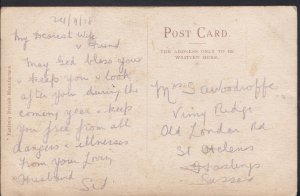 24/9/18
My Dearest Wife
& Friend
May God bless you
& keep you & look
after you during the
coming year & keep
you free from all
dangers & illnesses
from your Loving
Husband
Sid
POST CARD.
THE ADDRESS ONLY TO BE
WRITTEN HERE.
Mrs S
Vimy Ridge
Old London Rd
St Helens
Hastings
Sussex